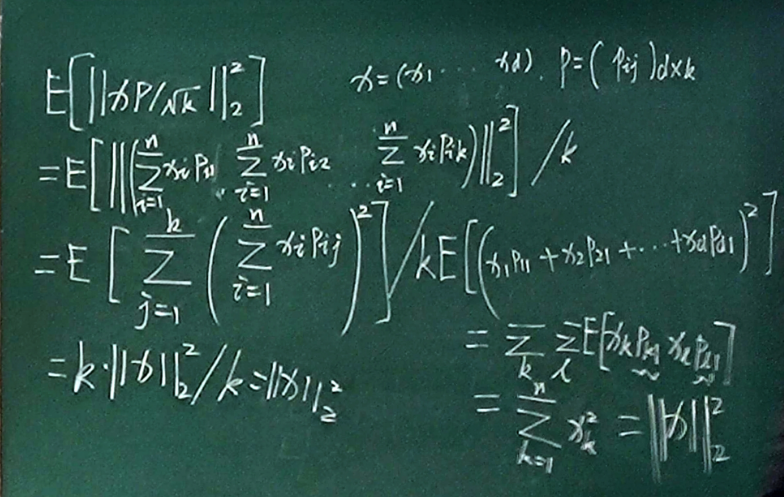 E[||xP/√k||₂²]    x=(x₁ ⋯ x_d). P=(P_{ij})_{d×k}
=E[||(∑_{i=1}^{n} x_i P_{i1}, ∑_{i=1}^{n} x_i P_{i2} … ∑_{i=1}^{n} x_i P_{ik})||₂²]/k
=E[∑_{j=1}^{k}(∑_{i=1}^{n} x_i P_{ij})²]/k
=k·||x||₂²/k=||x||₂²
E[(x₁P₁₁+x₂P₂₁+⋯+x_dP_{d1})²]
=∑_k ∑_l E[x_k P_{k1} x_l P_{l1}]
=∑_{k=1}^{n} x_k²=||x||₂²